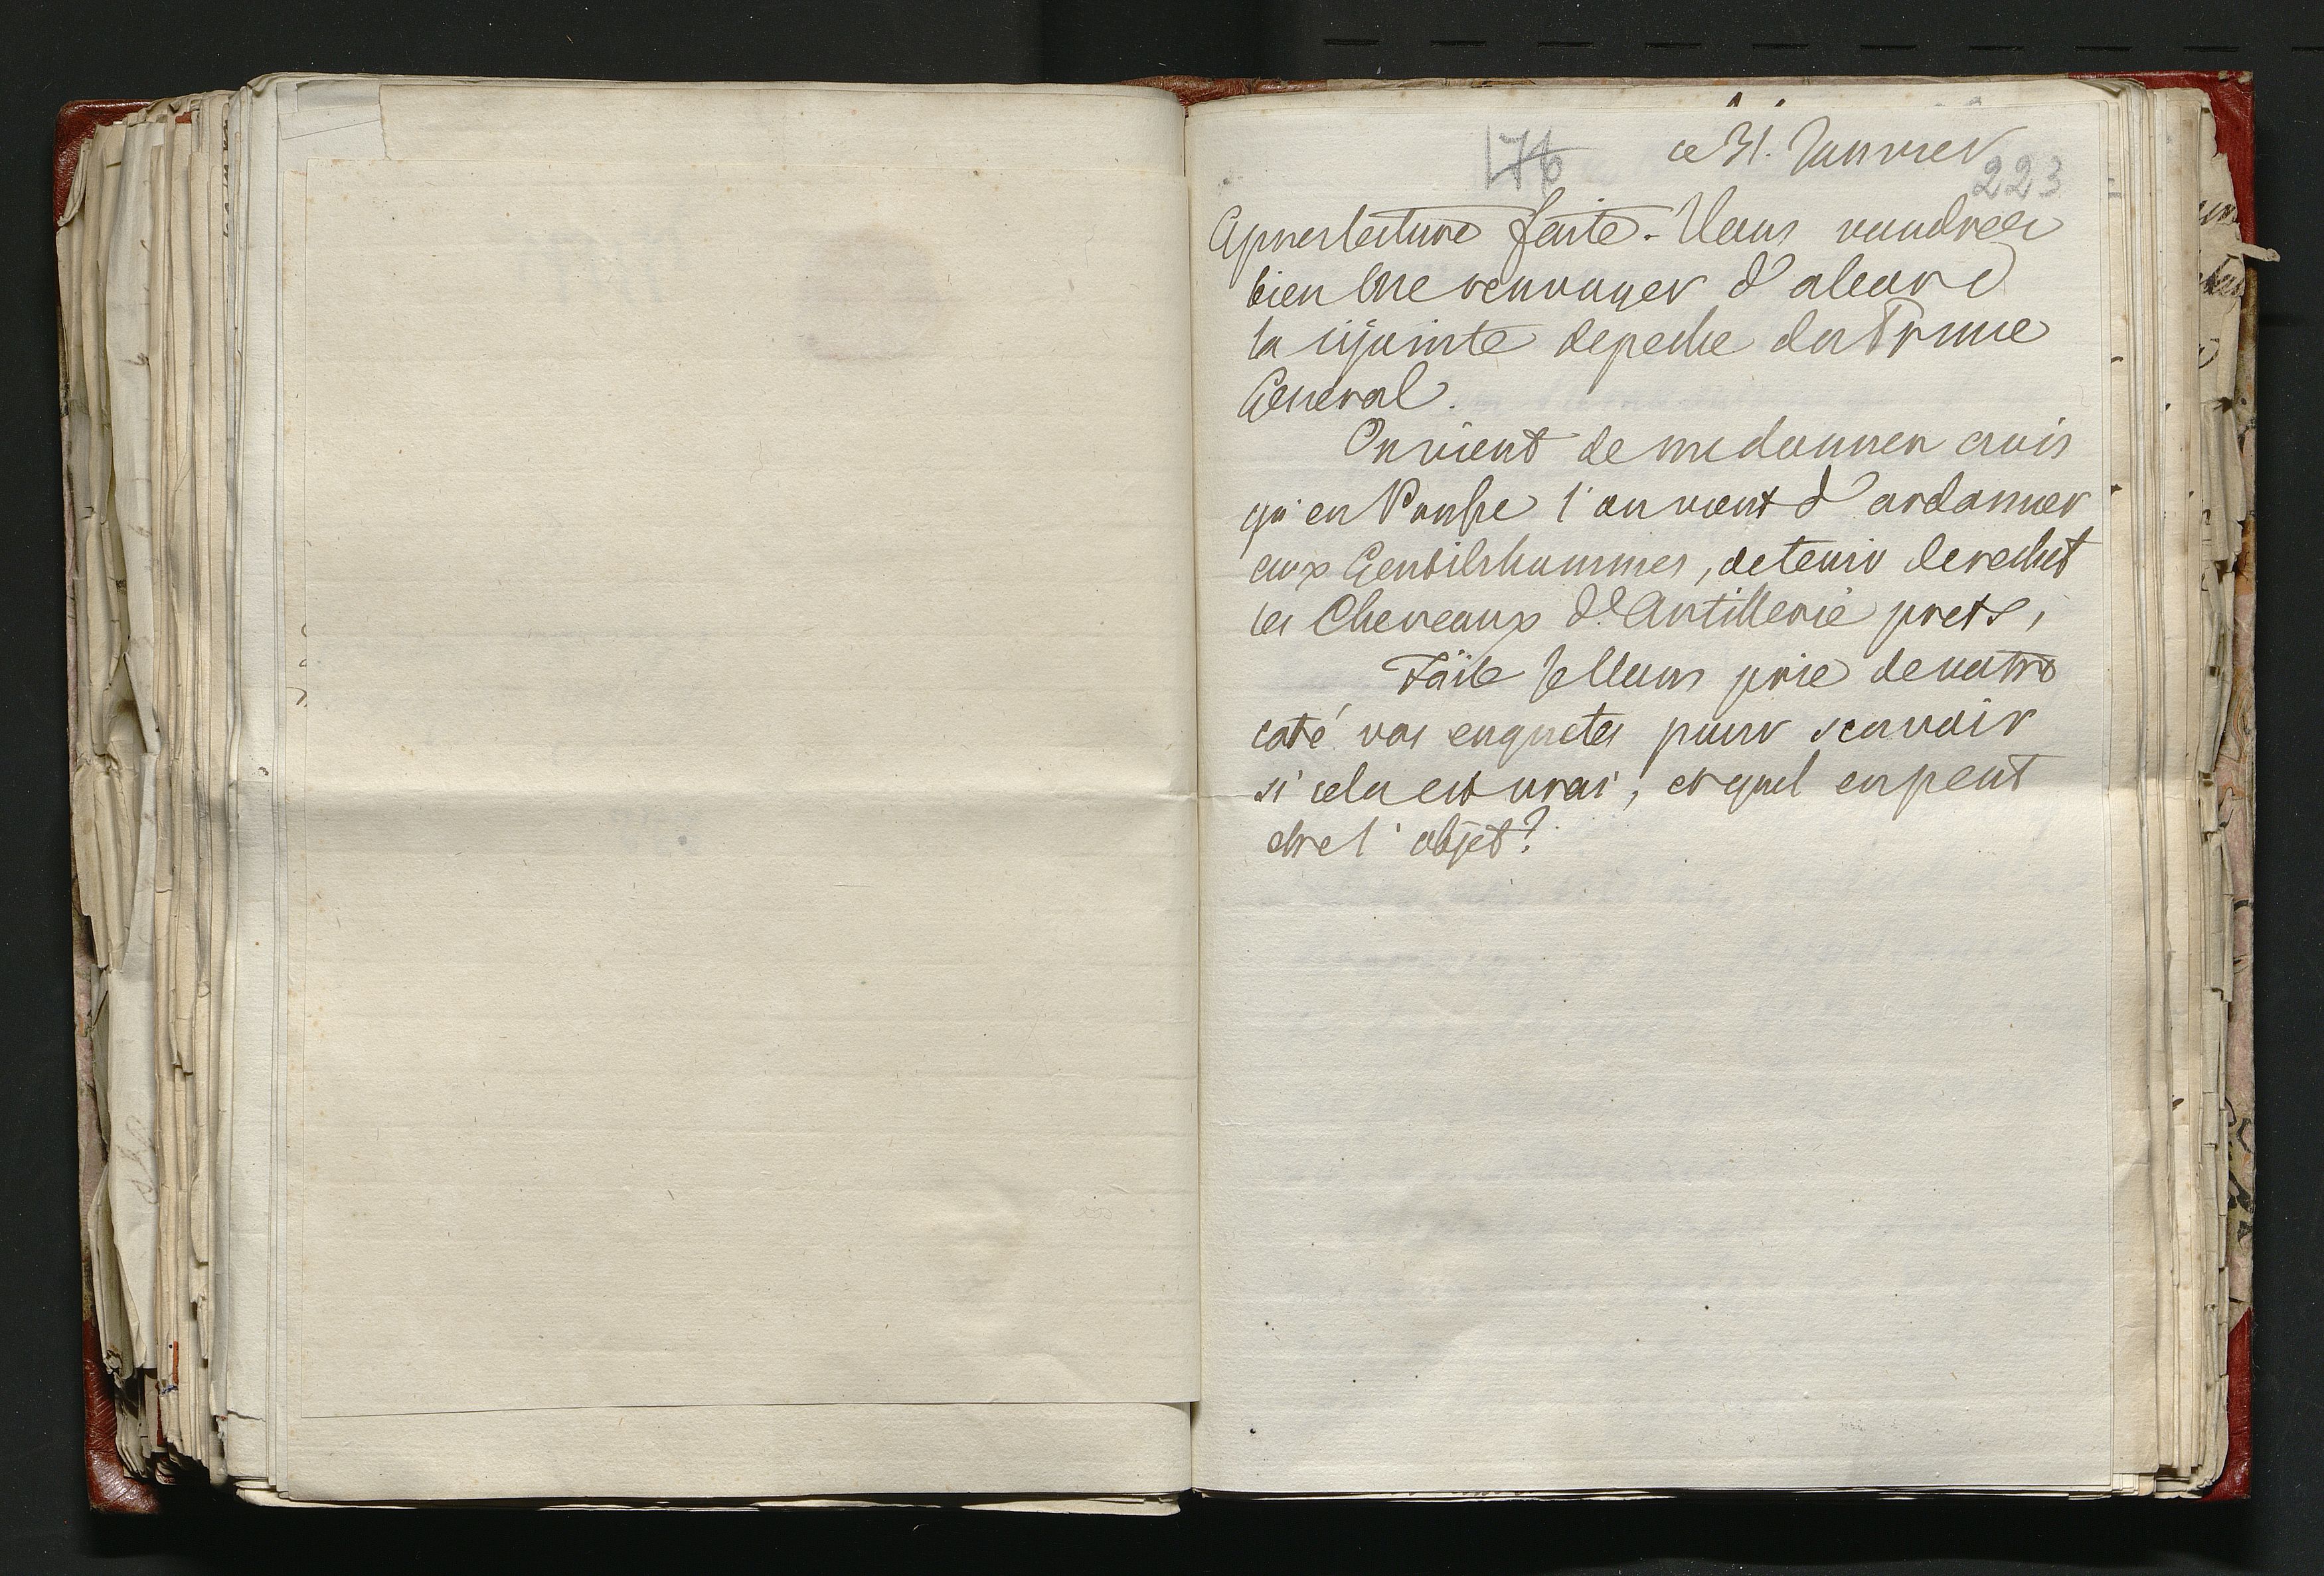 ce 31. Janvier
176
223
Apres lecture faite. Vous voudrees
bien me renvoyer d'abord
la cijointe depeche du Prince
General.
On vient de me donner avis
qu'en l'on vient d'ordonner
aux Gentilshommes, de tenir derechef
les Cheveaux d'Artillerie prets,
Faite je Vous prie de votre
coté vos enquetes pour scavoir
si cela est vrai, et quel en peut
etre l'objet?